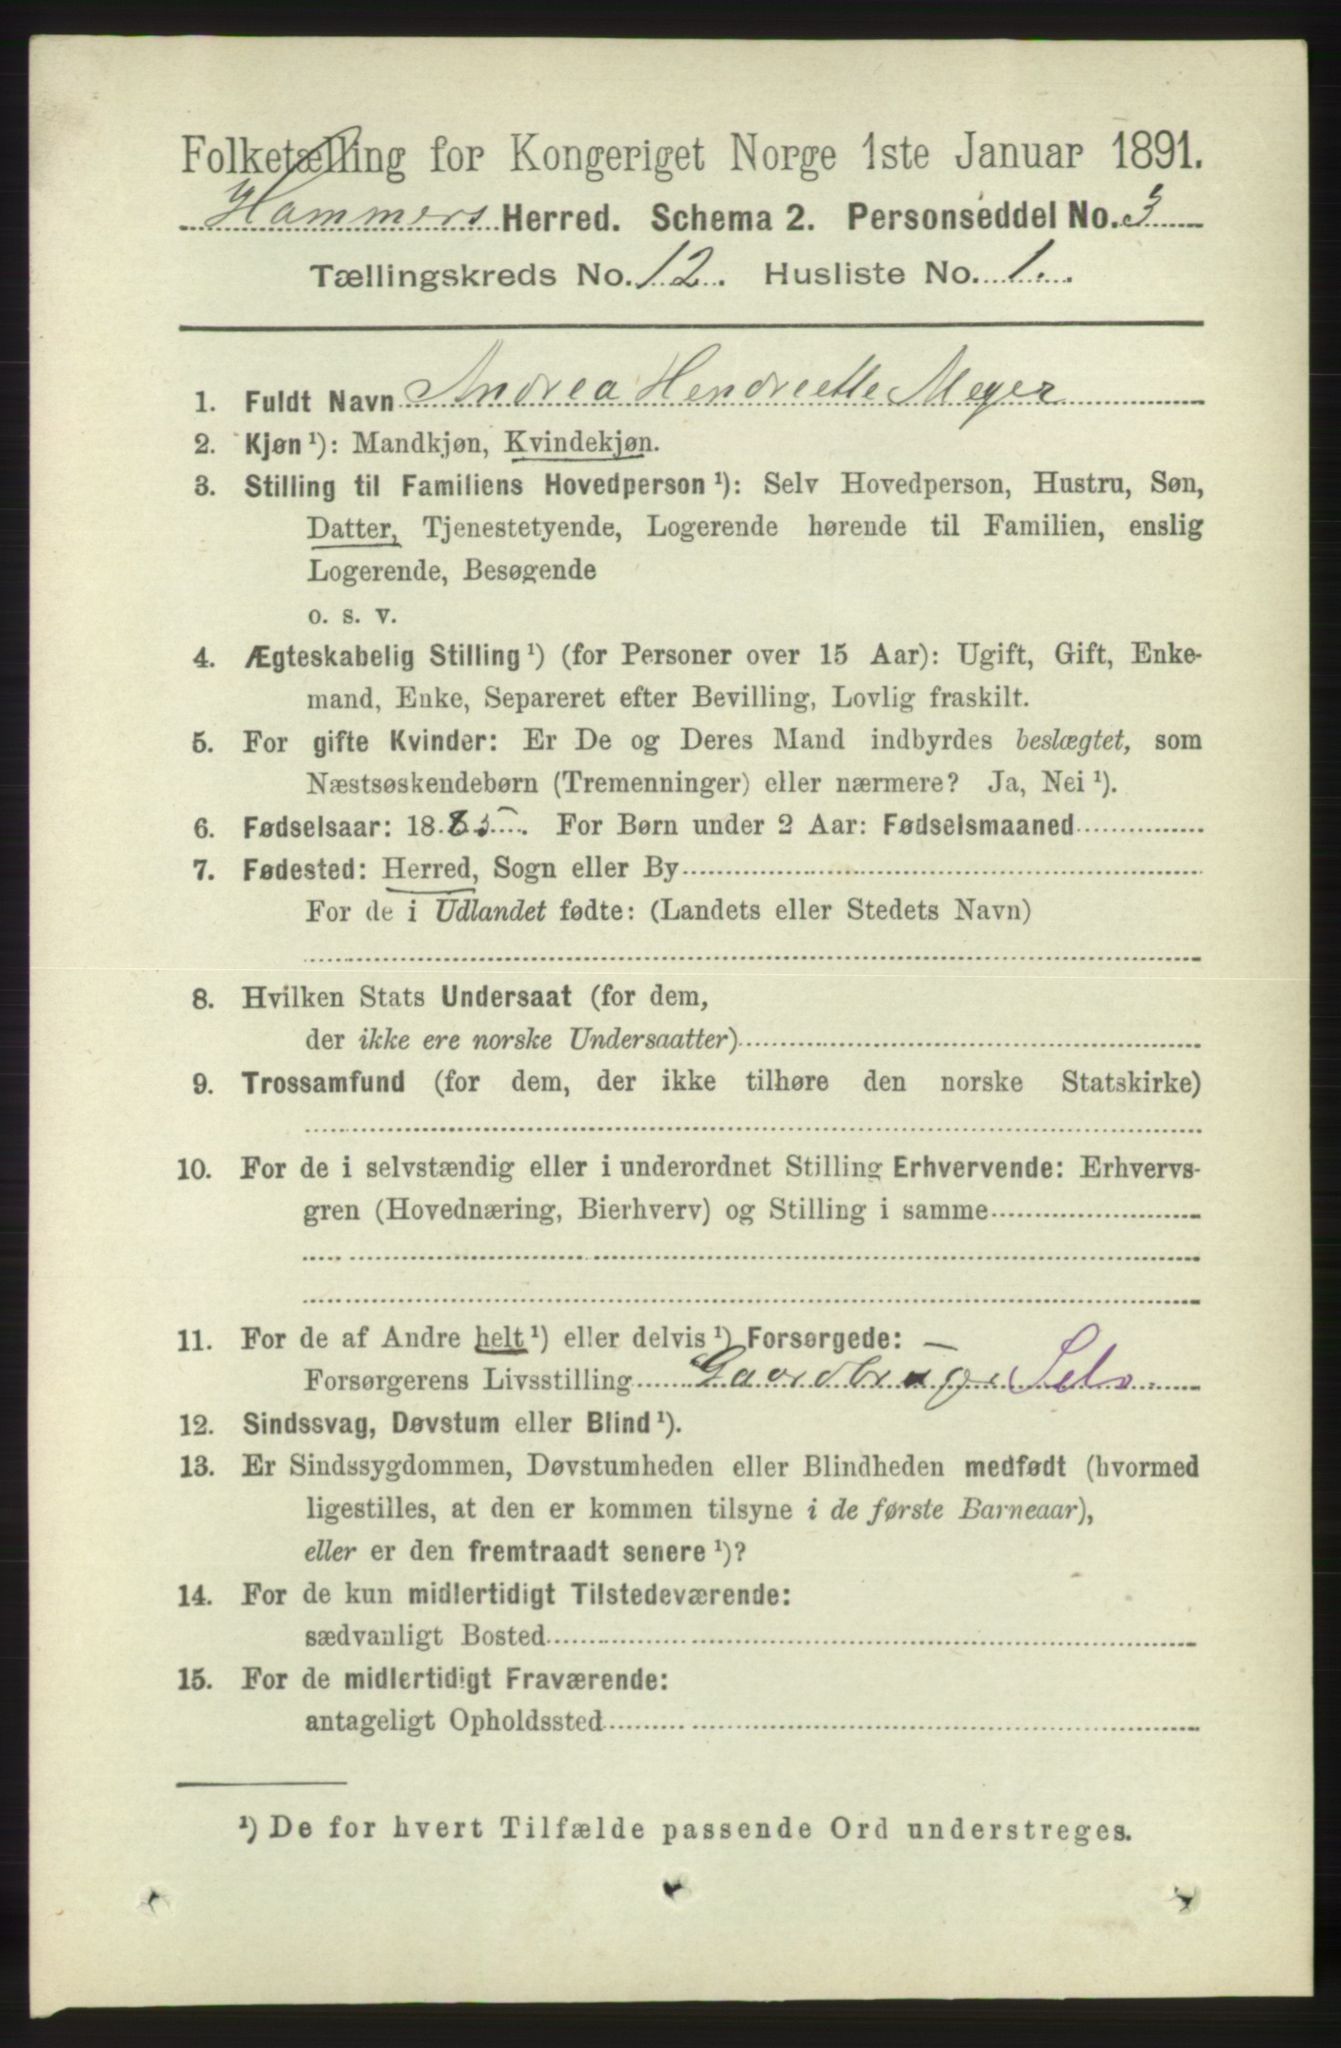 Folketælling for Kongeriget Norge 1ste Januar 1891.
Hammers Herred. Schema 2. Personseddel No. 3
Tællingskreds No. 12. Husliste No. 1.
1. Fuldt Navn Andrea Hendreette Meyer
2. Kjøn ¹): Mandkjøn, Kvindekjøn.
3. Stilling til Familiens Hovedperson ¹): Selv Hovedperson, Hustru, Søn,
Datter, Tjenestetyende, Logerende hørende til Familien, enslig
Logerende, Besøgende
o. s. v.
4. Ægteskabelig Stilling ¹) (for Personer over 15 Aar): Ugift, Gift, Enke-
mand, Enke, Separeret efter Bevilling, Lovlig fraskilt.
5. For gifte Kvinder: Er De og Deres Mand indbyrdes beslægtet, som
Næstsøskendebørn (Tremenninger) eller nærmere? Ja, Nei ¹).
6. Fødselsaar: 1885. For Børn under 2 Aar: Fødselsmaaned
7. Fødested: Herred, Sogn eller By
For de i Udlandet fødte: (Landets eller Stedets Navn)
8. Hvilken Stats Undersaat (for dem,
der ikke ere norske Undersaatter)
9. Trossamfund (for dem, der ikke tilhøre den norske Statskirke)
10. For de i selvstændig eller i underordnet Stilling Erhvervende: Erhvervs-
gren (Hovednæring, Bierhverv) og Stilling i samme
11. For de af Andre helt ¹) eller delvis ¹) Forsørgede:
Forsørgerens Livsstilling Gaardbruger Selv
12. Sindssvag, Døvstum eller Blind ¹).
13. Er Sindssygdommen, Døvstumheden eller Blindheden medfødt (hvormed
ligestilles, at den er kommen tilsyne i de første Barneaar),
eller er den fremtraadt senere ¹)?
14. For de kun midlertidigt Tilstedeværende:
sædvanligt Bosted
15. For de midlertidigt Fraværende:
antageligt Opholdssted
¹) De for hvert Tilfælde passende Ord understreges.